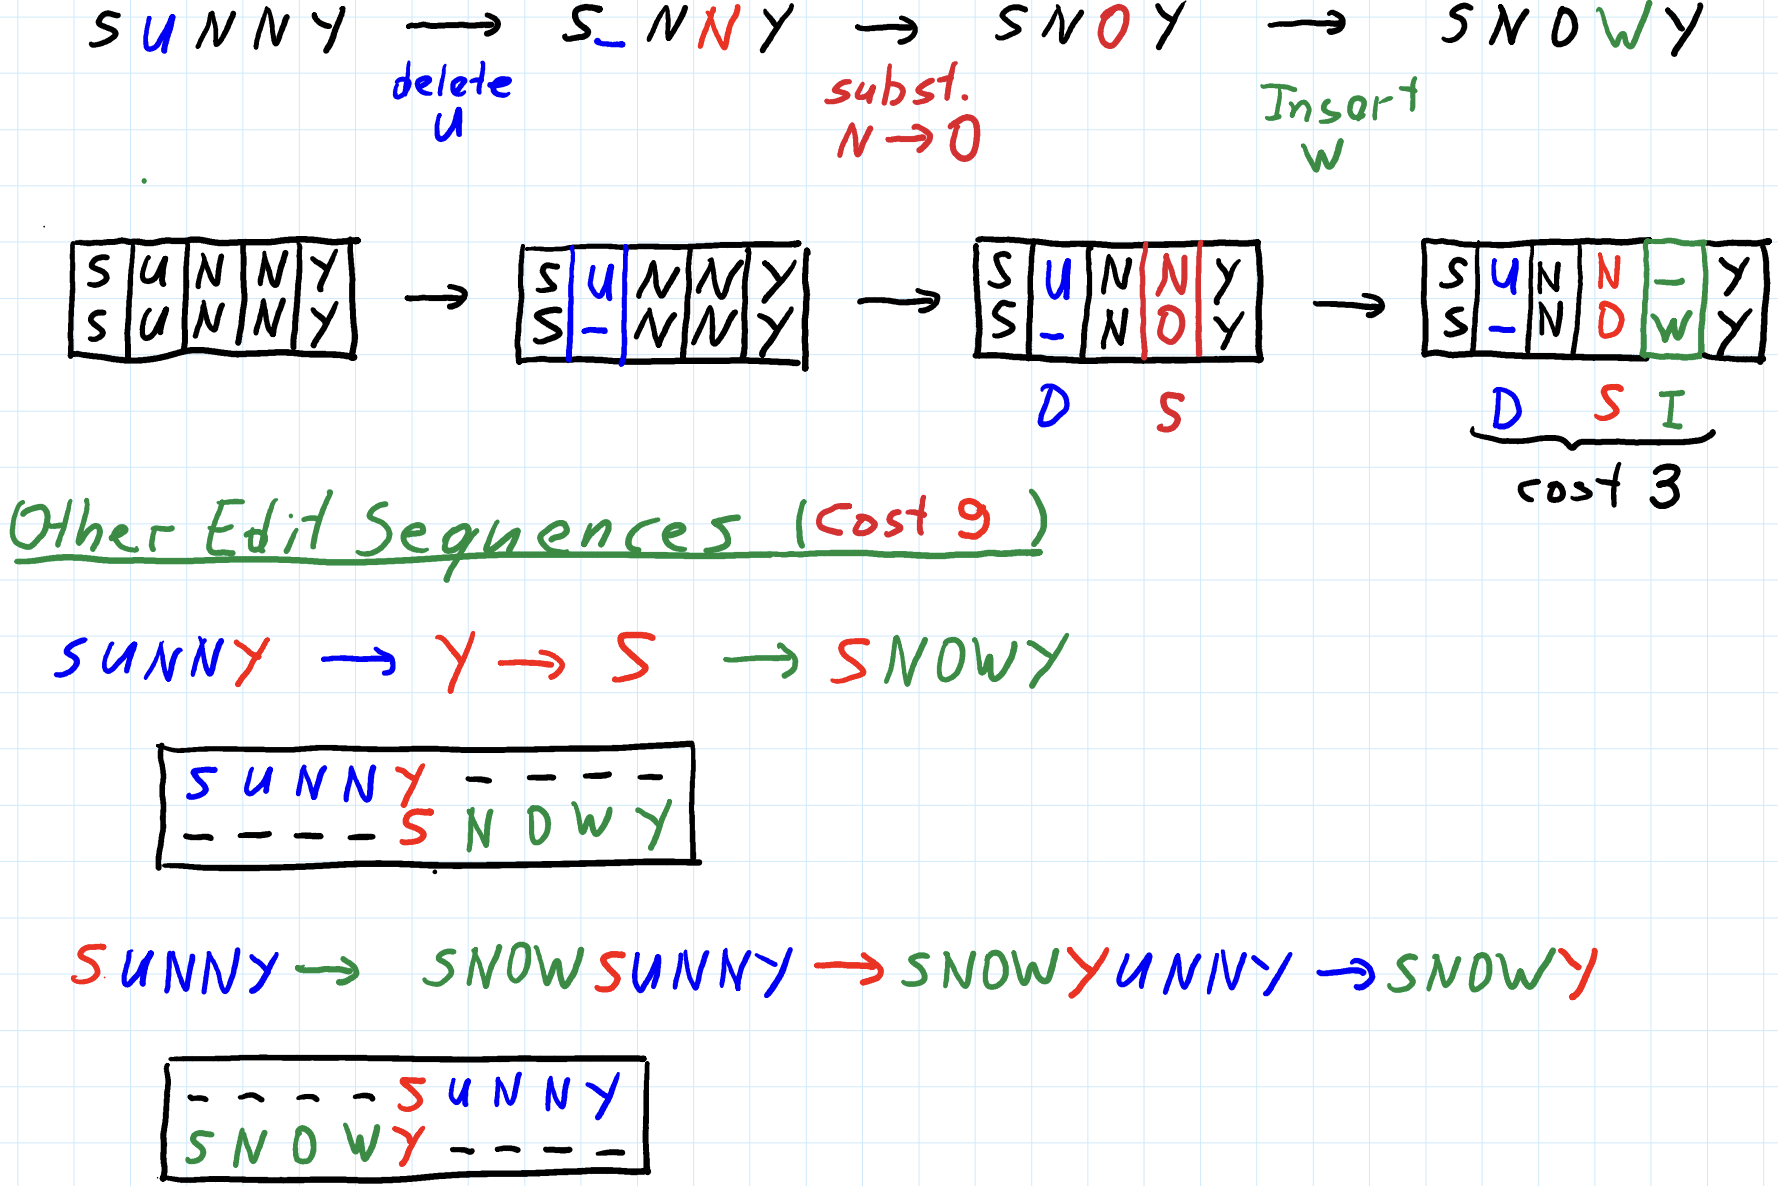 SUNNY → S_NNY → SNOY → SNOWY
delete subst. Insert
U N→O W
S U N N Y → S U N N Y → S U N N Y → S U N N – Y
S U N N Y S – N N Y S – N O Y S – N O W Y
D S D S I
cost 3
Other Edit Sequences (cost 9)
SUNNY → Y → S → SNOWY
S U N N Y – – – –
– – – – S N O W Y
SUNNY → SNOWSUNNY → SNOWYUNNY → SNOWY
– – – – S U N N Y
S N O W Y – – – –